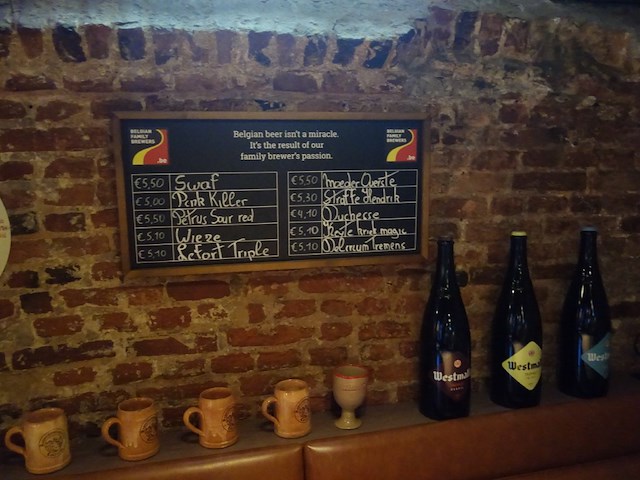 BELGIAN
FAMILY
BREWERS
.be
Belgian beer isn't a miracle.
It's the result of our
family brewer's passion.
BELGIAN
FAMILY
BREWERS
.be
€5,50 Swaf
€5,00 Pink Killer
€5,50 Petrus Sour red
€5,10 Wieze
€5,10 Lefort Triple
€5,50 Moeder Overste
€5,30 Straffe Hendrik
€4,10 Duchesse
€5,10 kriek magic
€5,10 Delirium Tremens
Westmal
Westmal
Westm